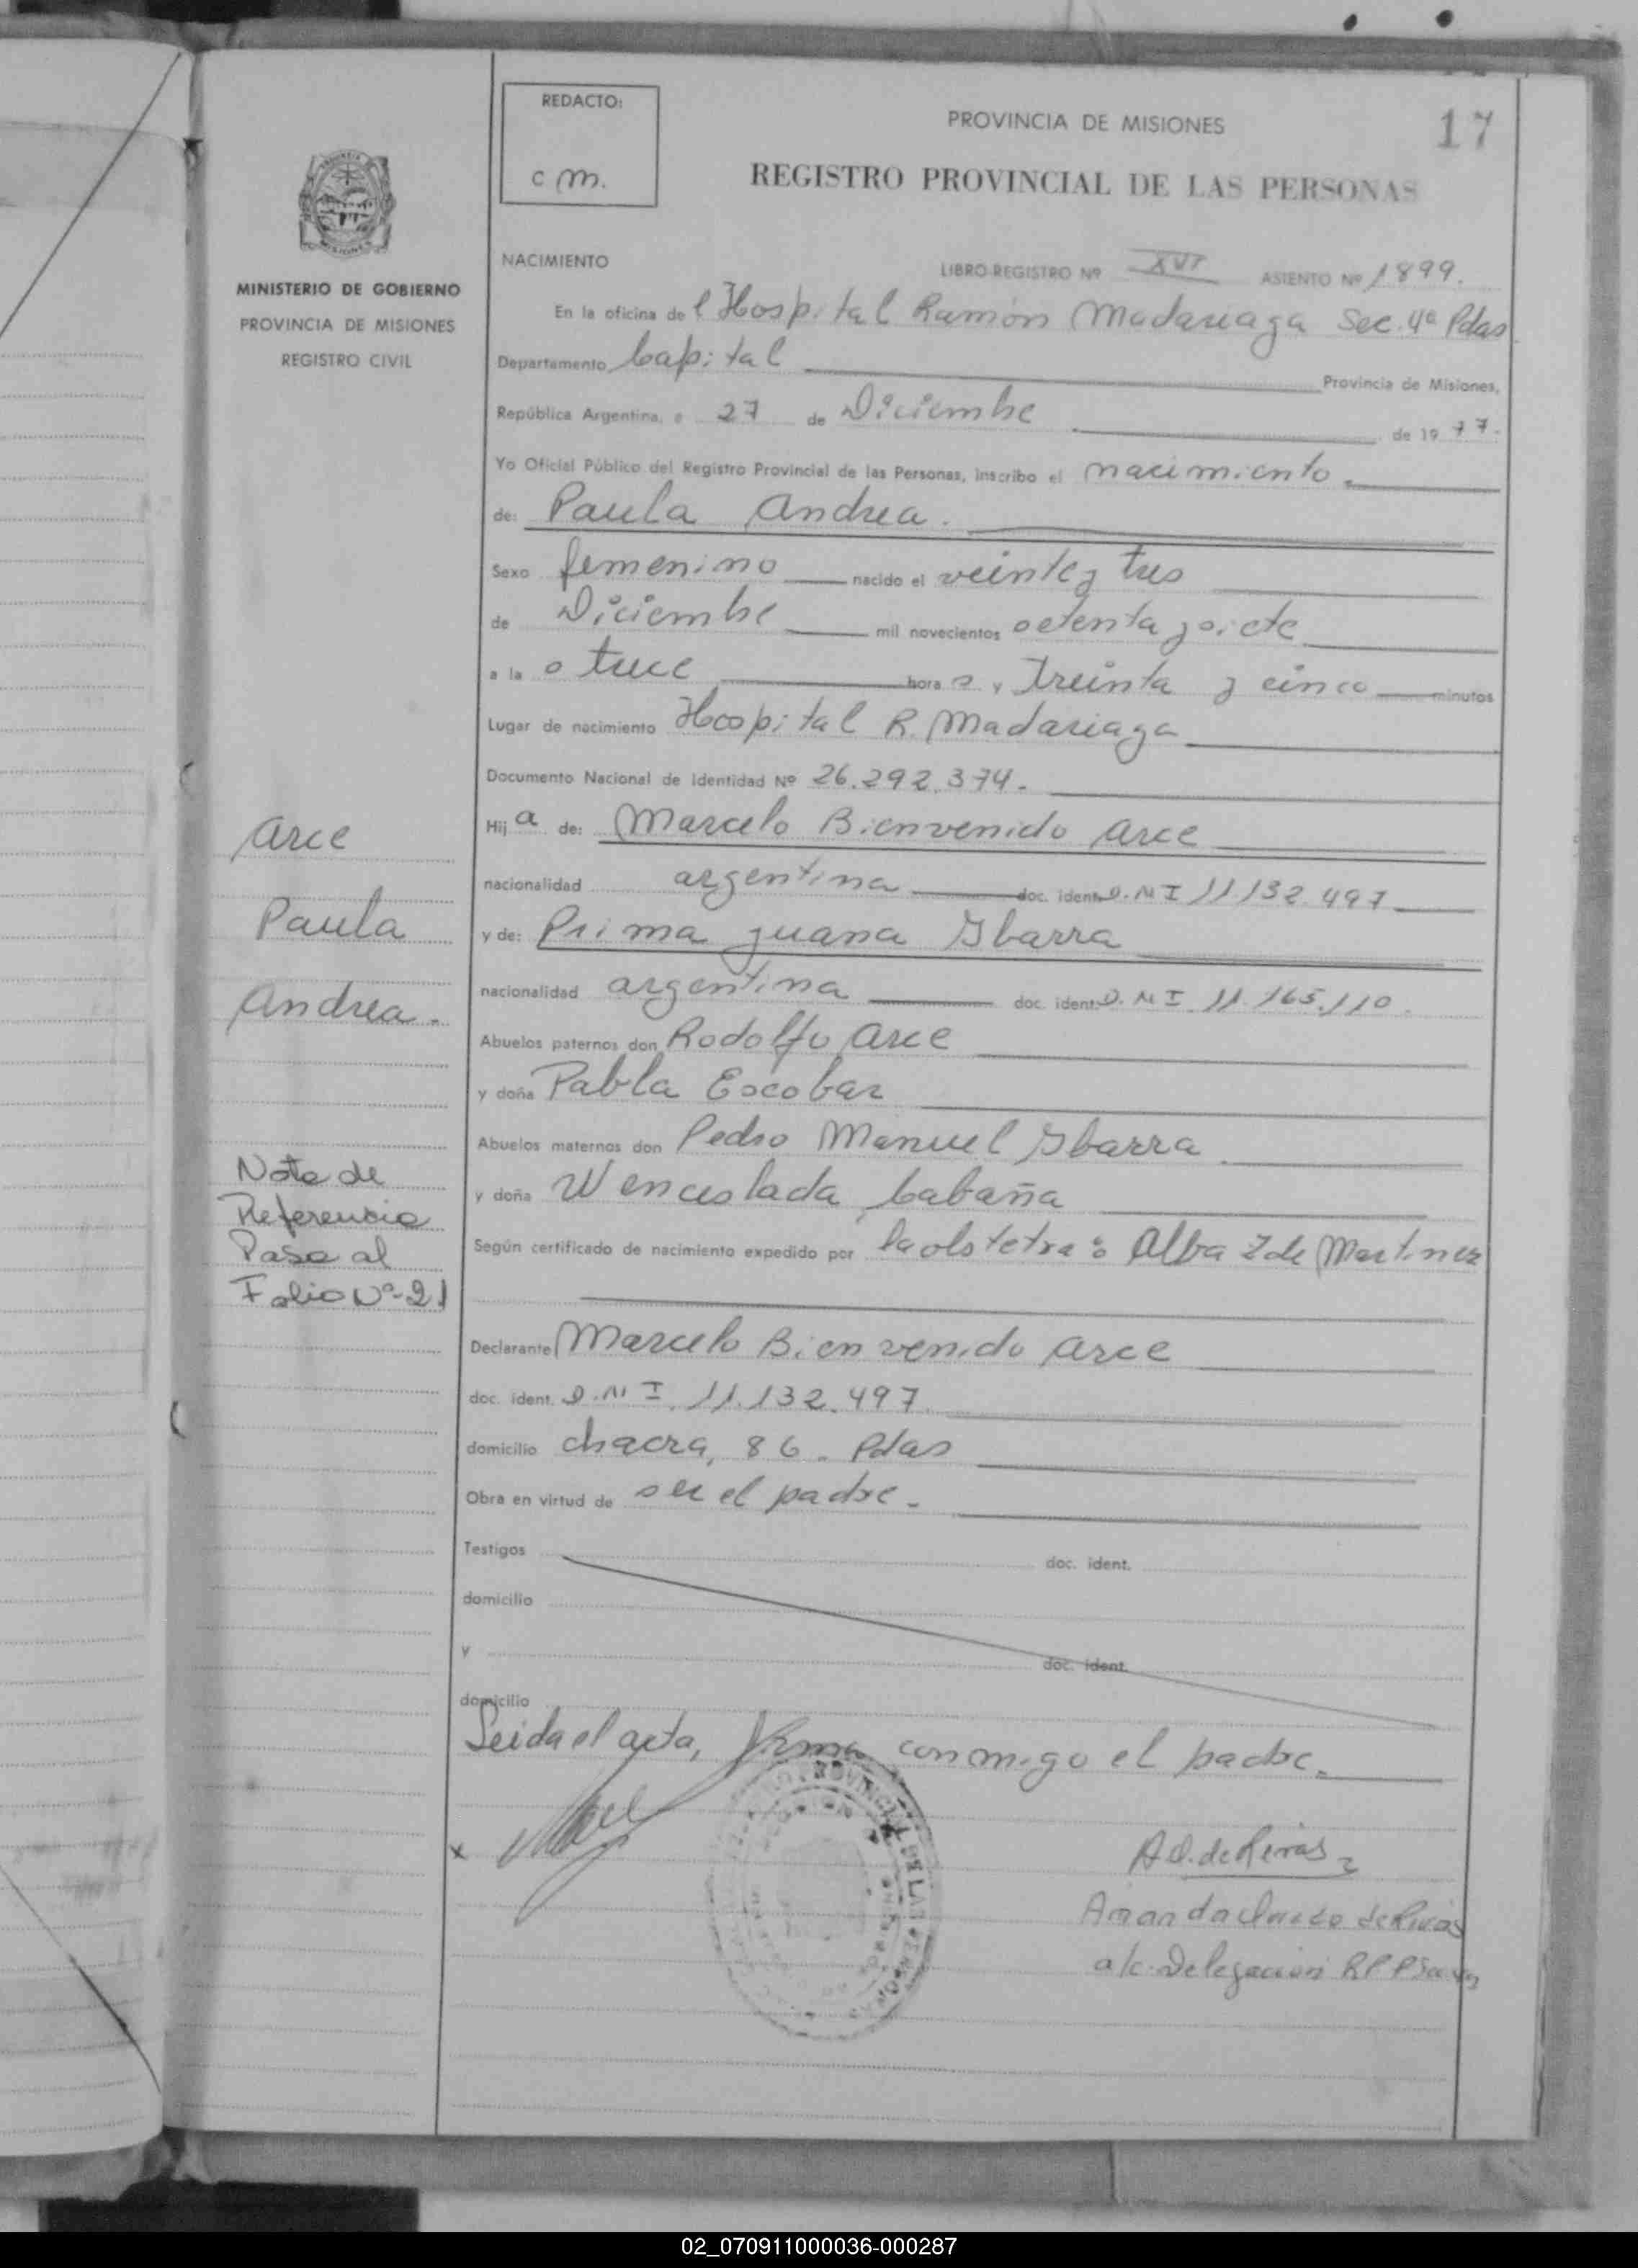 REDACTO:
c m.
PROVINCIA DE MISIONES
17
REGISTRO PROVINCIAL DE LAS PERSONAS
MINISTERIO DE GOBIERNO
PROVINCIA DE MISIONES
REGISTRO CIVIL
NACIMIENTO LIBRO-REGISTRO Nº XVI ASIENTO Nº 1899.
En la oficina del Hospital Ramón Madariaga Sec. 4ª Pdas
Departamento Capital Provincia de Misiones,
República Argentina, a 27 de Diciembre de 1977.
Yo Oficial Público del Registro Provincial de las Personas, inscribo el nacimiento.
de: Paula Andrea.
Sexo femenino nacido el veinte y tres
de Diciembre mil novecientos setenta y siete
a la s trece hora s y treinta y cinco minutos
Lugar de nacimiento Hospital R. Madariaga
Documento Nacional de Identidad Nº 26.292.374.
Hija de: Marcelo Bienvenido Arce
nacionalidad argentina doc. ident. D.N I 11.132.497
y de: Prima Juana Ibarra
nacionalidad argentina doc. ident. D.N I 11.165.110.
Abuelos paternos don Rodolfo Arce
y doña Pabla Escobar
Abuelos maternos don Pedro Manuel Ibarra
y doña Wenceslada Cabaña
Según certificado de nacimiento expedido por la obstetra: Alba Z de Martinez
Declarante Marcelo Bienvenido Arce
doc. ident. D.N I. 11.132.497.
domicilio chacra, 86. Pdas
Obra en virtud de ser el padre.
Testigos doc. ident.
domicilio
y doc. ident.
domicilio
Leida el acta, firma conmigo el padre.
x
A.O. de Rivas
Amanda de Rivas
a/c. Delegación R P P
Arce
Paula
Andrea.
Nota de
Referencia
Pasa al
Folio Nº-21
02_070911000036-000287